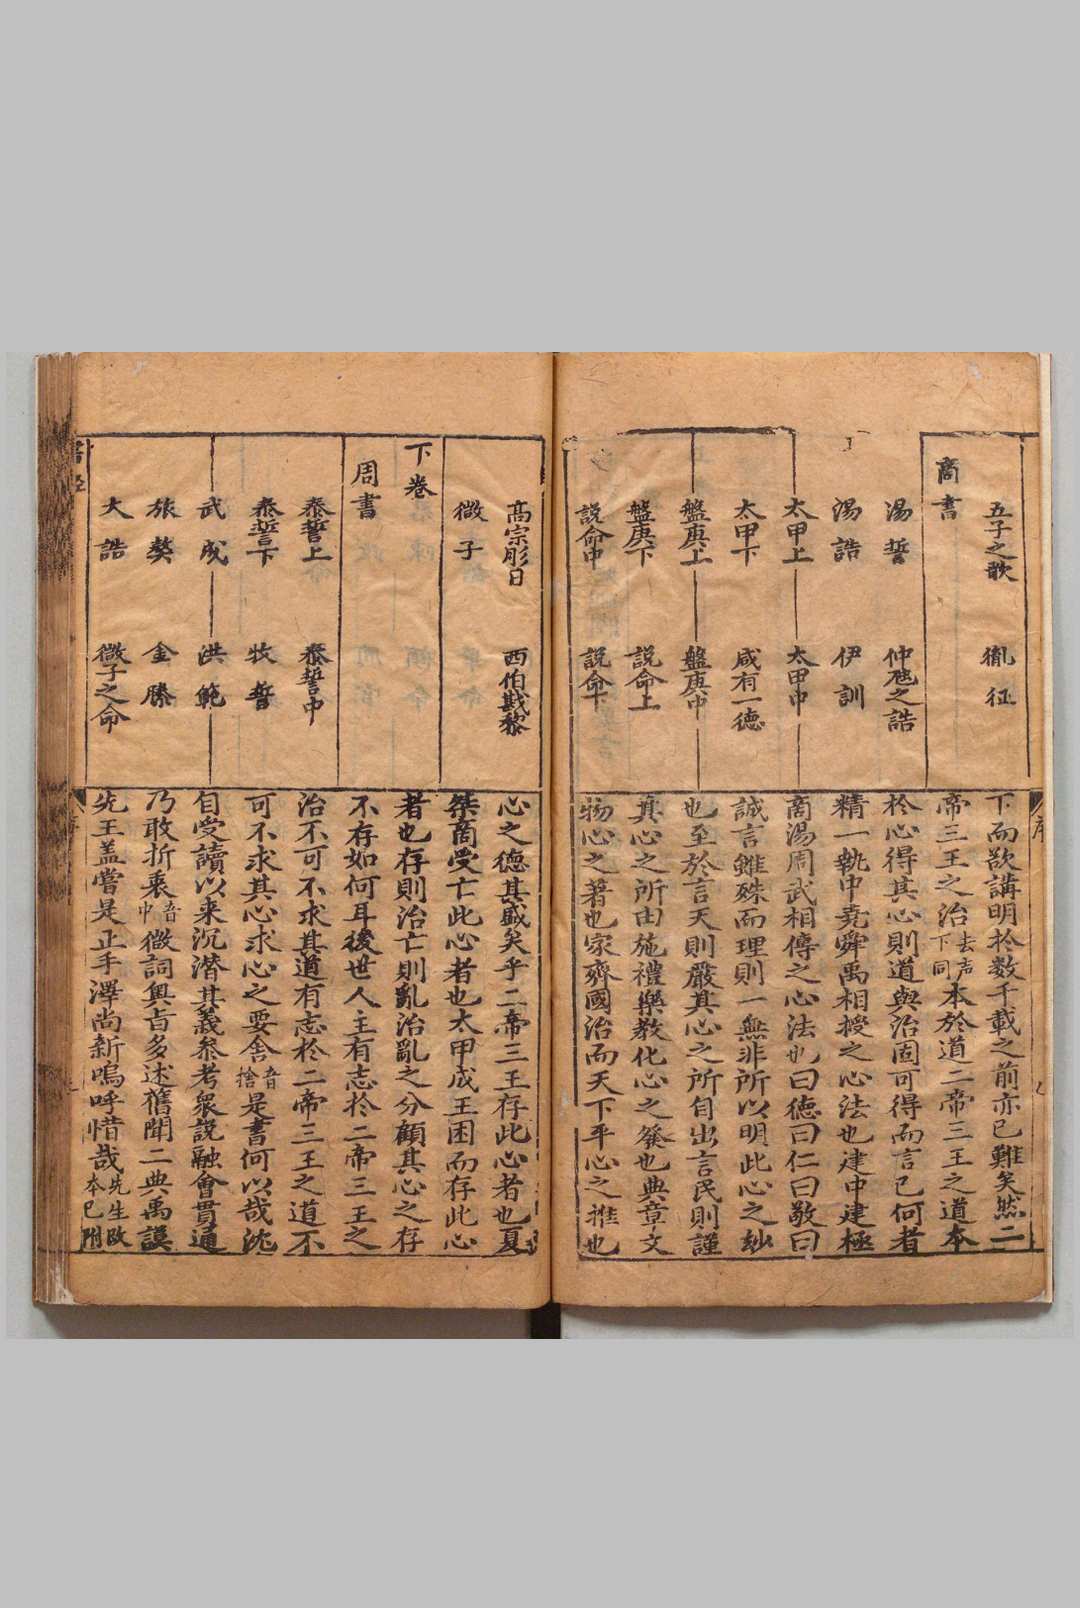 五子之歌 胤征
商書
湯誓 仲虺之誥
湯誥 伊訓
太甲上 太甲中
太甲下 咸有一德
盤庚上 盤庚中
盤庚下 説命上
説命中 説命下
序
下而欲講明於数千載之前亦已難矣然二
帝三王之治去声下同本於道二帝三王之道本
於心得其心則道與治固可得而言已何者
精一執中堯舜禹相授之心法也建中建極
商湯周武相傳之心法也曰德曰仁曰敬曰
誠言雖殊而理則一無非所以明此心之妙
也至於言天則嚴其心之所自出言民則謹
其心之所由施禮樂教化心之發也典章文
物心之著也家齊國治而天下平心之推也
高宗肜日 西伯戡黎
微子
下卷
周書
泰誓上 泰誓中
泰誓下 牧誓
武成 洪範
旅獒 金縢
大誥 微子之命
心之德其盛矣乎二帝三王存此心者也夏
桀商受亡此心者也太甲成王困而存此心
者也存則治亡則亂治亂之分顧其心之存
不存如何耳後世人主有志於二帝三王之
治不可不求其道有志於二帝三王之道不
可不求其心求心之要舎音捨是書何以哉沈
自受讀以来沉潜其義參考衆說融會貫通
乃敢折衷音中微詞奥旨多述舊聞二典禹謨
先王盖嘗是正手澤尚新嗚呼惜哉先生改本已附
書經
序